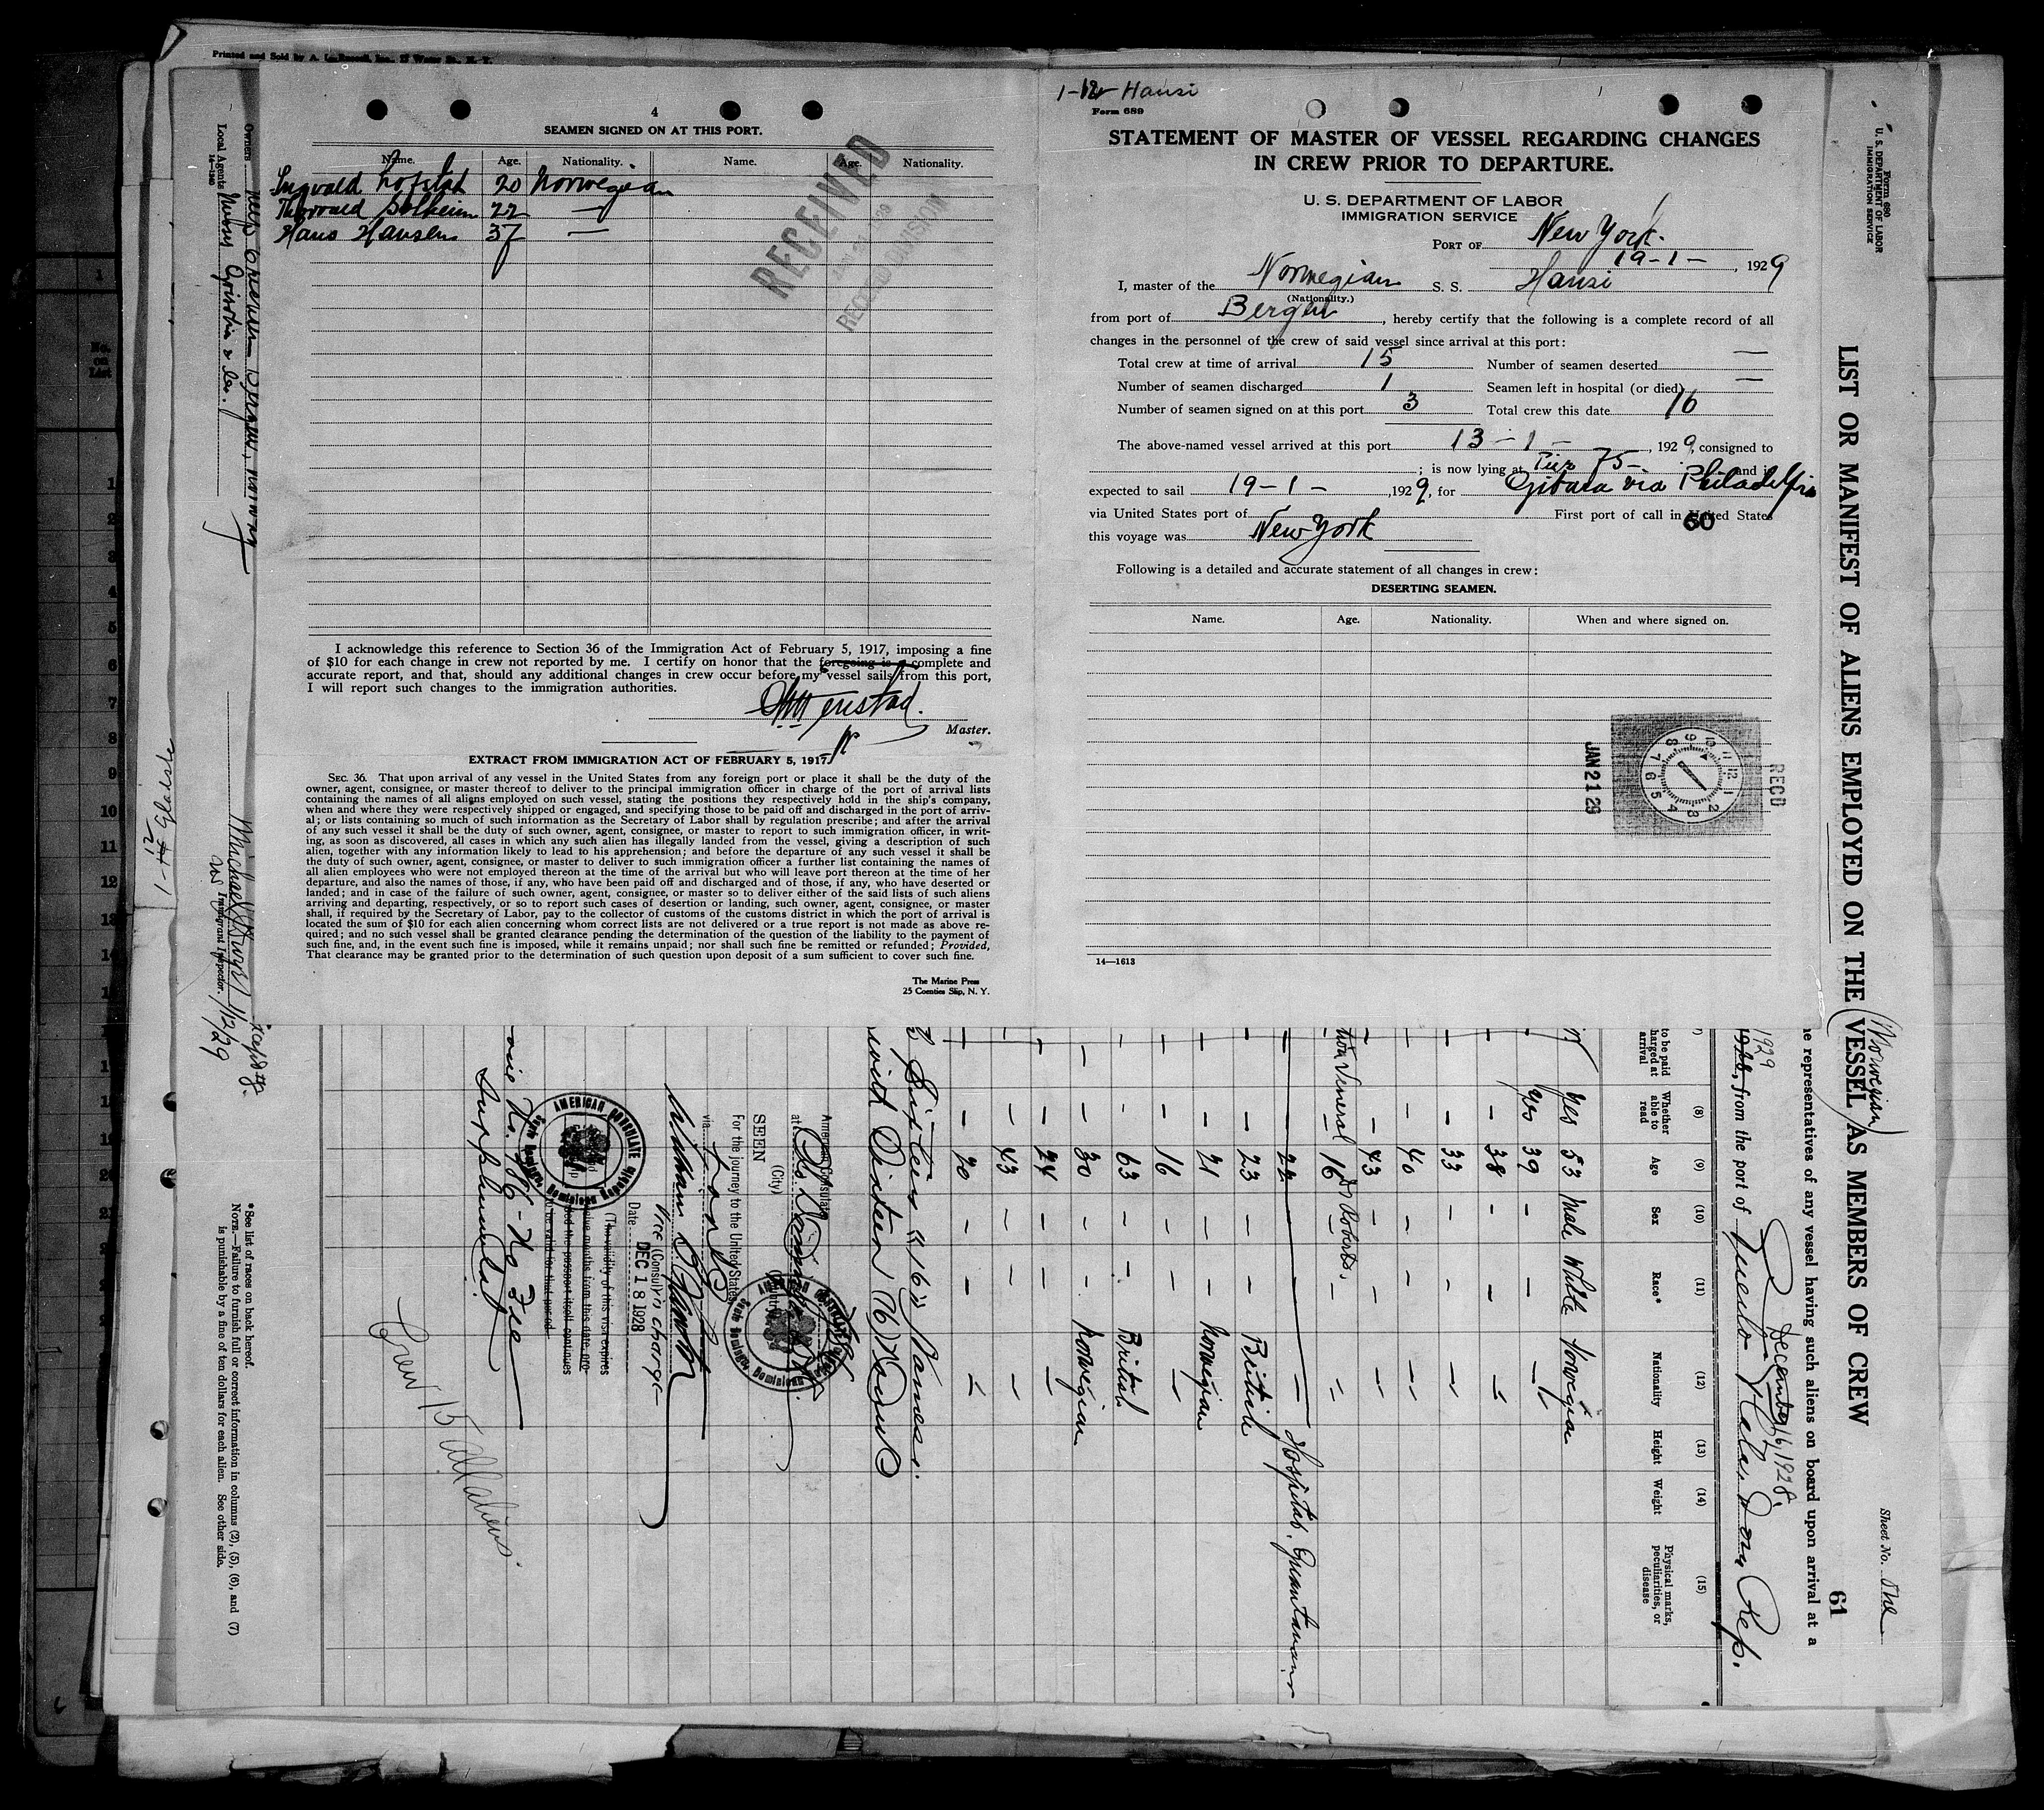 Printed and Sold by
4
SEAMEN SIGNED ON AT THIS PORT.
Name. Age. Nationality. Name. Age. Nationality.
Ingvald Lofstad 20 Norwegian
Thorvald Solheim 22 —
Hans Hansen 37 —
RECEIVED
RECORD DIVISION
I acknowledge this reference to Section 36 of the Immigration Act of February 5, 1917, imposing a fine
of $10 for each change in crew not reported by me. I certify on honor that the foregoing is a complete and
accurate report, and that, should any additional changes in crew occur before my vessel sails from this port,
I will report such changes to the immigration authorities.
Master.
EXTRACT FROM IMMIGRATION ACT OF FEBRUARY 5, 1917.
SEC. 36. That upon arrival of any vessel in the United States from any foreign port or place it shall be the duty of the
owner, agent, consignee, or master thereof to deliver to the principal immigration officer in charge of the port of arrival lists
containing the names of all aliens employed on such vessel, stating the positions they respectively hold in the ship's company,
when and where they were respectively shipped or engaged, and specifying those to be paid off and discharged in the port of arriv-
al; or lists containing so much of such information as the Secretary of Labor shall by regulation prescribe; and after the arrival
of any such vessel it shall be the duty of such owner, agent, consignee, or master to report to such immigration officer, in writ-
ing, as soon as discovered, all cases in which any such alien has illegally landed from the vessel, giving a description of such
alien, together with any information likely to lead to his apprehension; and before the departure of any such vessel it shall be
the duty of such owner, agent, consignee, or master to deliver to such immigration officer a further list containing the names of
all alien employees who were not employed thereon at the time of the arrival but who will leave port thereon at the time of her
departure, and also the names of those, if any, who have been paid off and discharged and of those, if any, who have deserted or
landed; and in case of the failure of such owner, agent, consignee, or master so to deliver either of the said lists of such aliens
arriving and departing, respectively, or so to report such cases of desertion or landing, such owner, agent, consignee, or master
shall, if required by the Secretary of Labor, pay to the collector of customs of the customs district in which the port of arrival is
located the sum of $10 for each alien concerning whom correct lists are not delivered or a true report is not made as above re-
quired; and no such vessel shall be granted clearance pending the determination of the question of the liability to the payment of
such fine, and, in the event such fine is imposed, while it remains unpaid; nor shall such fine be remitted or refunded; Provided,
That clearance may be granted prior to the determination of such question upon deposit of a sum sufficient to cover such fine.
The Marine Press
25 Coenties Slip, N. Y.
1-12 Hansi
Form 689
STATEMENT OF MASTER OF VESSEL REGARDING CHANGES
IN CREW PRIOR TO DEPARTURE.
U. S. DEPARTMENT OF LABOR
IMMIGRATION SERVICE
PORT OF New York.
19-1-, 1929
I, master of the Norwegian S. S. Hansi
(Nationality.)
from port of Bergen, hereby certify that the following is a complete record of all
changes in the personnel of the crew of said vessel since arrival at this port:
Total crew at time of arrival 15 Number of seamen deserted —
Number of seamen discharged 1 Seamen left in hospital (or died) —
Number of seamen signed on at this port 3 Total crew this date 16
The above-named vessel arrived at this port 13-1-, 1929, consigned to
; is now lying at Pier 75- and is
expected to sail 19-1-, 1929, for Gibara via Philadelphia
via United States port of First port of call in United States
60
this voyage was New York
Following is a detailed and accurate statement of all changes in crew:
DESERTING SEAMEN.
Name. Age. Nationality. When and where signed on.
RECD
JAN 21 29
14—1613
Form 680
U. S. DEPARTMENT OF LABOR
IMMIGRATION SERVICE
Sheet No. One
61
LIST OR MANIFEST OF ALIENS EMPLOYED ON THE (Norwegian) VESSEL AS MEMBERS OF CREW
representatives of any vessel having such aliens on board upon arrival at a
December 16, 1928.
1929
from the port of Puerto Plata, Dom Rep.
(8) (9) (10) (11) (12) (13) (14) (15)
to be paid
arrival
Whether able to read Age Sex Race* Nationality Height Weight Physical marks, peculiarities, or disease
yes 53 male White Norwegian
yes 39 — — —
— 38 — — —
— 33 — — —
— 40 — — —
— 43 — — —
16 — — —
— 22 — — — Hospital, Guantanamo
— 23 — — British
— 21 — — Norwegian
— 16 — — —
— 63 — — British
— 30 — — Norwegian
— 24 — — —
— 43 — — —
— 20 — — —
"16" Names.
(16) Names
American Consulate
at
(City)
SEEN
For the journey to the United States
via
William
Vice Consul in charge
Date DEC 18 1928
(The validity of this visa expires
AMERICAN CONSULATE
Dominican Republic
No Fee
Crew 15 all aliens
*See list of races on back hereof.
NOTE.—Failure to furnish full or correct information in columns (2), (5), (6), and (7)
is punishable by a fine of ten dollars for each alien. See other side.
Owners Bergen, Norway
Local Agents
14—1240
Michael
Immigrant Inspector.
1/12/29
No. on List
1
1
2
3
4
5
6
7
8
9
10
11
12
13
14